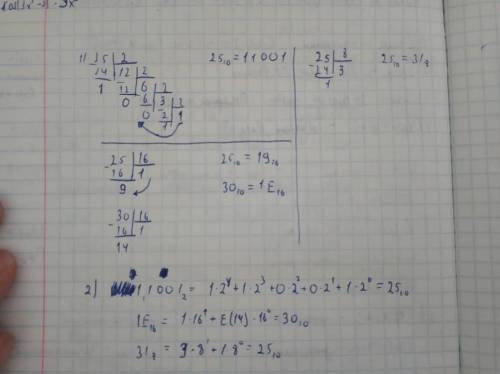 1) 25 | 2
14 | 12 | 2
1 -12 | 6 | 2
0 6 | 3 | 2
0 -2 | 1
1
25₁₀ = 11001
-25 | 8
24 | 3
1
25₁₀ = 31₈
-25 | 16
16 | 1
9
25₁₀ = 19₁₆
30₁₀ = 1E₁₆
-30 | 16
16 | 1
14
2) 11001₂ = 1·2⁴+1·2³+0·2²+0·2¹+1·2⁰=25₁₀
1E₁₆ = 1·16¹+E(14)·16⁰=30₁₀
31₈ = 3·8¹+1·8⁰=25₁₀